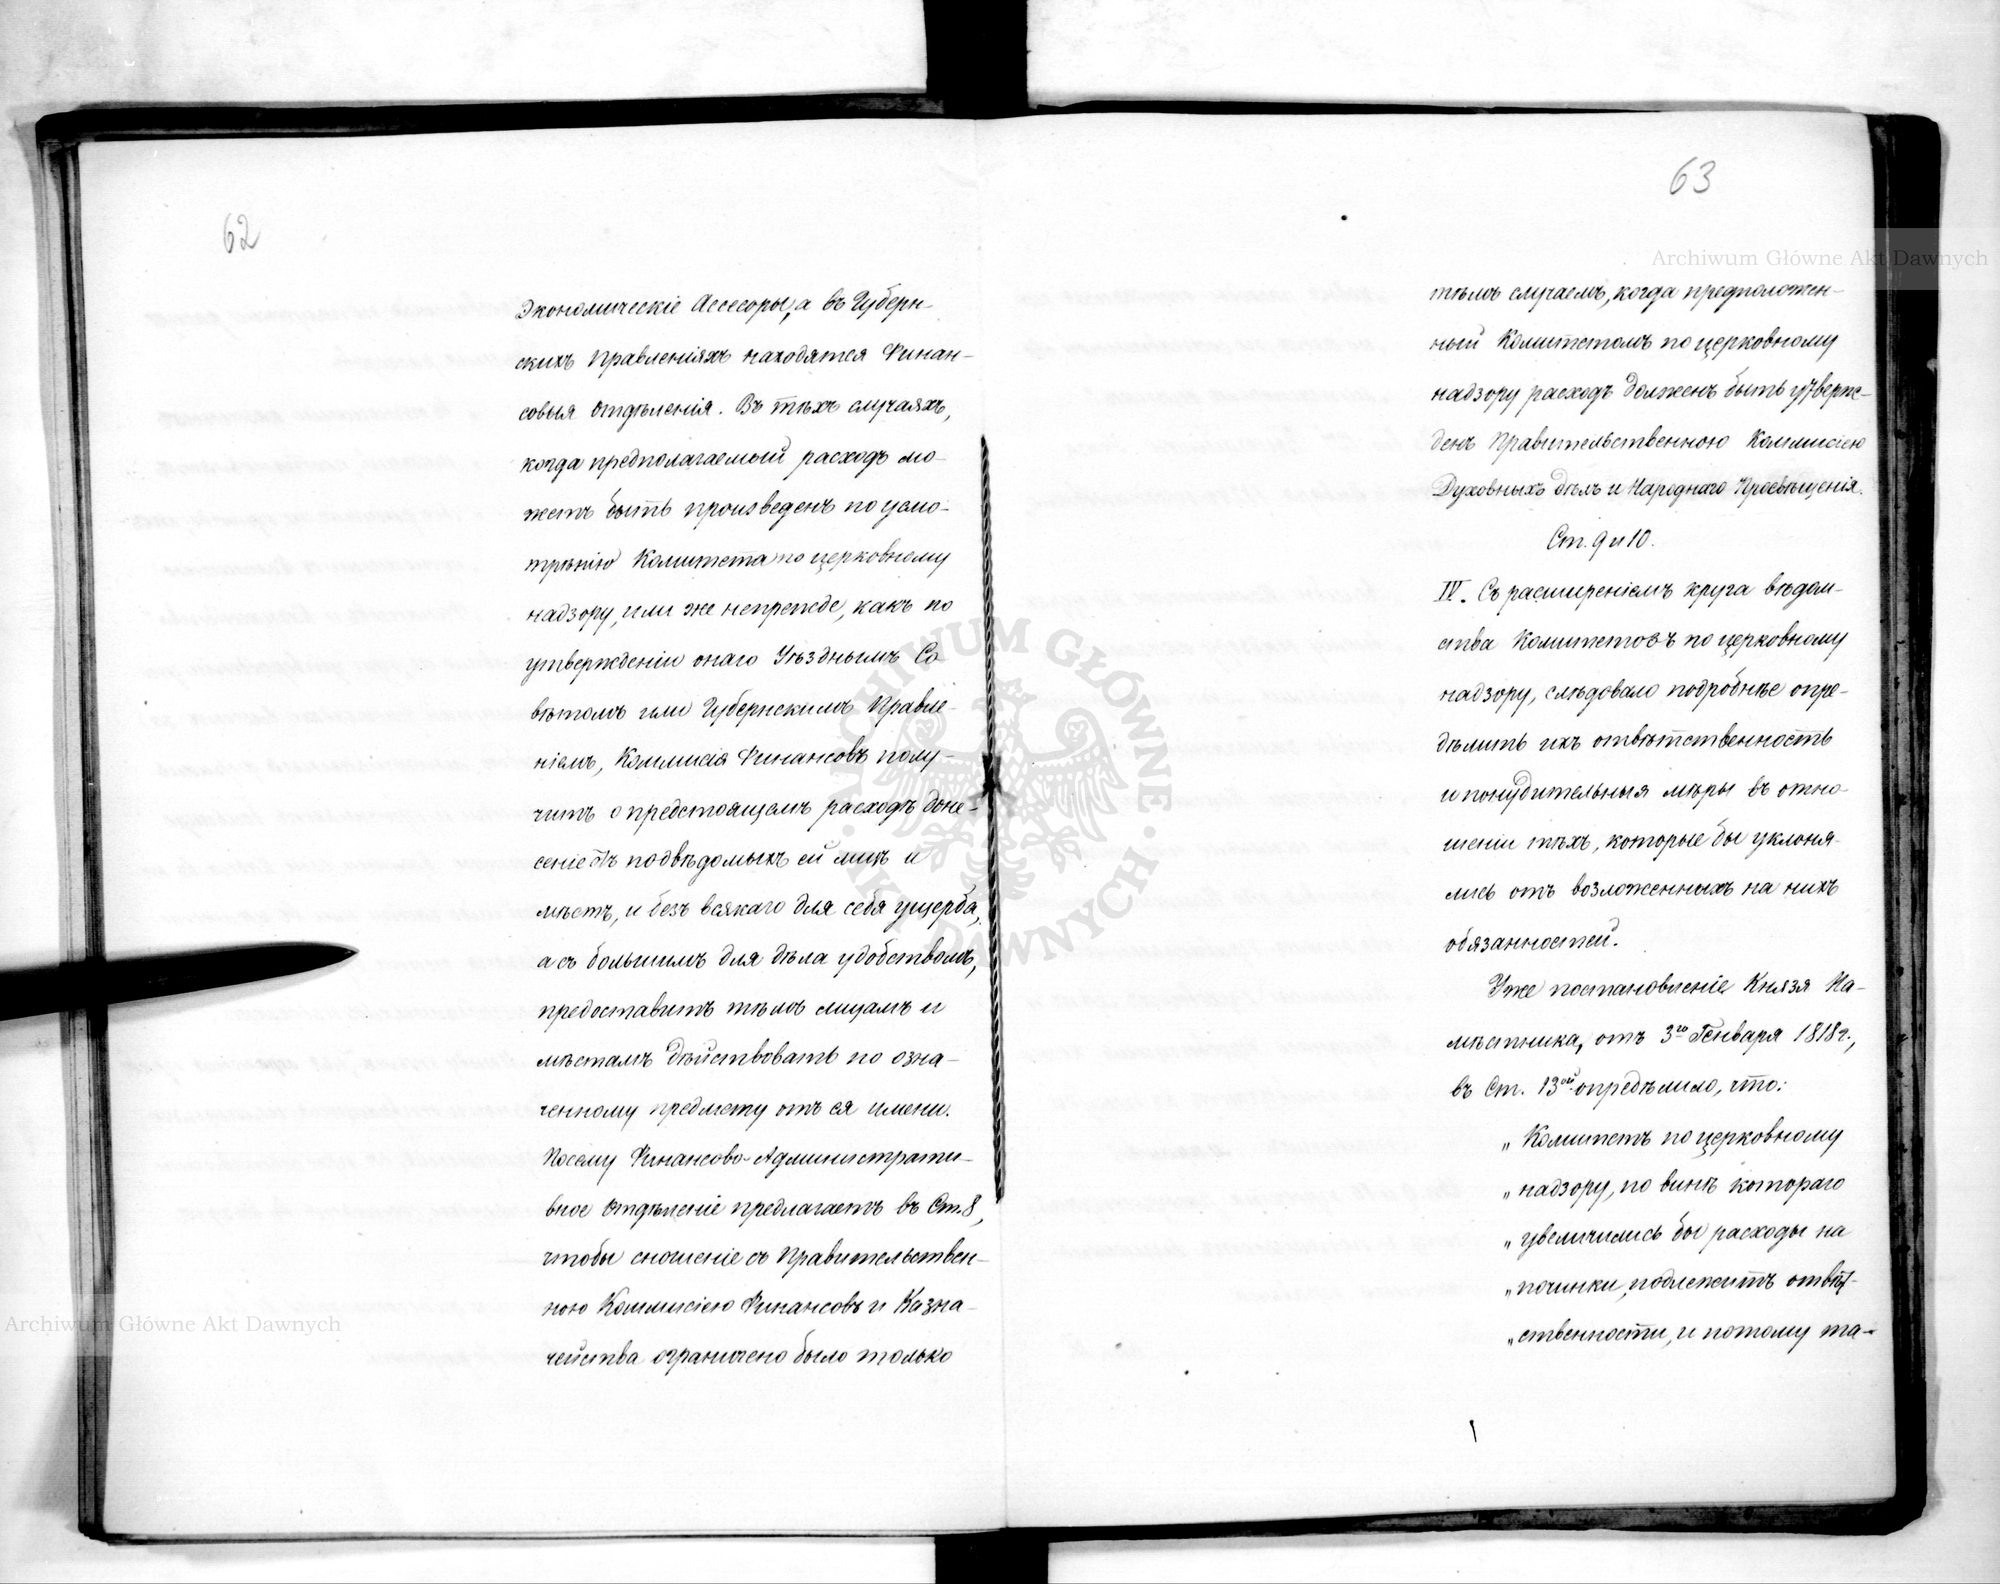 62
Экономическіе Ассесоры, а въ Губерн-
скихъ Правленіяхъ находятся Финан-
совыя Отдѣленія. Въ тѣхъ случаяхъ,
когда предполагаемый расходъ мо-
жетъ быть произведенъ по усмо-
трѣнію Комитета по церковному
надзору, или же непрежде, какъ по
утвержденіи онаго Уѣзднымъ Со
вѣтомъ или Губернскимъ Правле-
ніемъ, Коммисія Финансовъ полу-
читъ о предстоящемъ расходѣ доне-
сеніе отъ подвѣдомыхъ ей лицъ и
мѣстъ, и безъ всякаго для себя ущерба,
а съ большимъ для дѣла удобствомъ,
предоставитъ тѣмъ лицамъ и
мѣстамъ дѣйствовать по озна-
ченному предмету отъ ея имени.
Посему Финансово-Администрати-
вное Отдѣленіе предлагаетъ въ Ст. 8,
чтобы сношеніе съ Правительствен-
ною Коммисіею Финансовъ и Казна-
чейства ограничено было только
63
тѣмъ случаемъ, когда предположен-
ный Комитетомъ по церковному
надзору расходъ долженъ быть утверж-
денъ Правительственною Коммисіею
Духовныхъ дѣлъ и Народнаго Просвѣщенія.
Ст. 9 и 10.
IV. Съ расширеніемъ круга вѣдом-
ства Комитетовъ по церковному
надзору, слѣдовало подробнѣе опре-
дѣлить ихъ отвѣтственность
и понудительныя мѣры въ отно-
шеніи тѣхъ, которые бы уклоня-
лись отъ возложенныхъ на нихъ
обязанностей.
Уже постановленіе Князя На-
мѣстника, отъ 3го Генваря 1818 г.,
въ Ст. 13ой опредѣлило, что:
„Комитетъ по церковному
„надзору, по винѣ котораго
„увеличились бы расходы на
„починки, подлежитъ отвѣт-
„ственности, и потому та-
Archiwum Główne Akt Dawnych
Archiwum Główne Akt Dawnych
ARCHIWUM GŁÓWNE AKT DAWNYCH